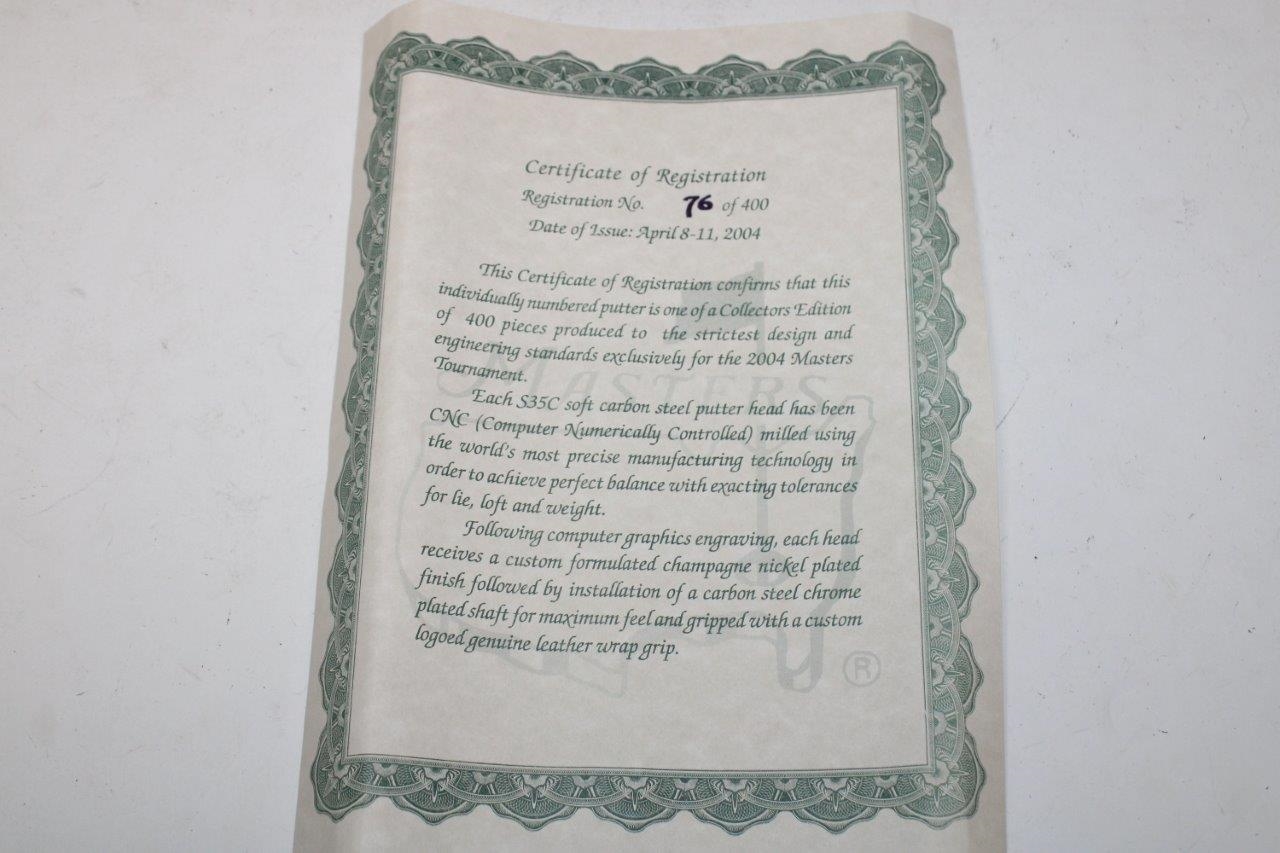 Certificate of Registration
Registration No. 76 of 400
Date of Issue: April 8-11, 2004
This Certificate of Registration confirms that this
individually numbered putter is one of a Collectors Edition
of 400 pieces produced to the strictest design and
engineering standards exclusively for the 2004 Masters
Tournament.
MASTERS
Each S35C soft carbon steel putter head has been
CNC (Computer Numerically Controlled) milled using
the world's most precise manufacturing technology in
order to achieve perfect balance with exacting tolerances
for lie, loft and weight.
Following computer graphics engraving, each head
receives a custom formulated champagne nickel plated
finish followed by installation of a carbon steel chrome
plated shaft for maximum feel and gripped with a custom
logoed genuine leather wrap grip.
®